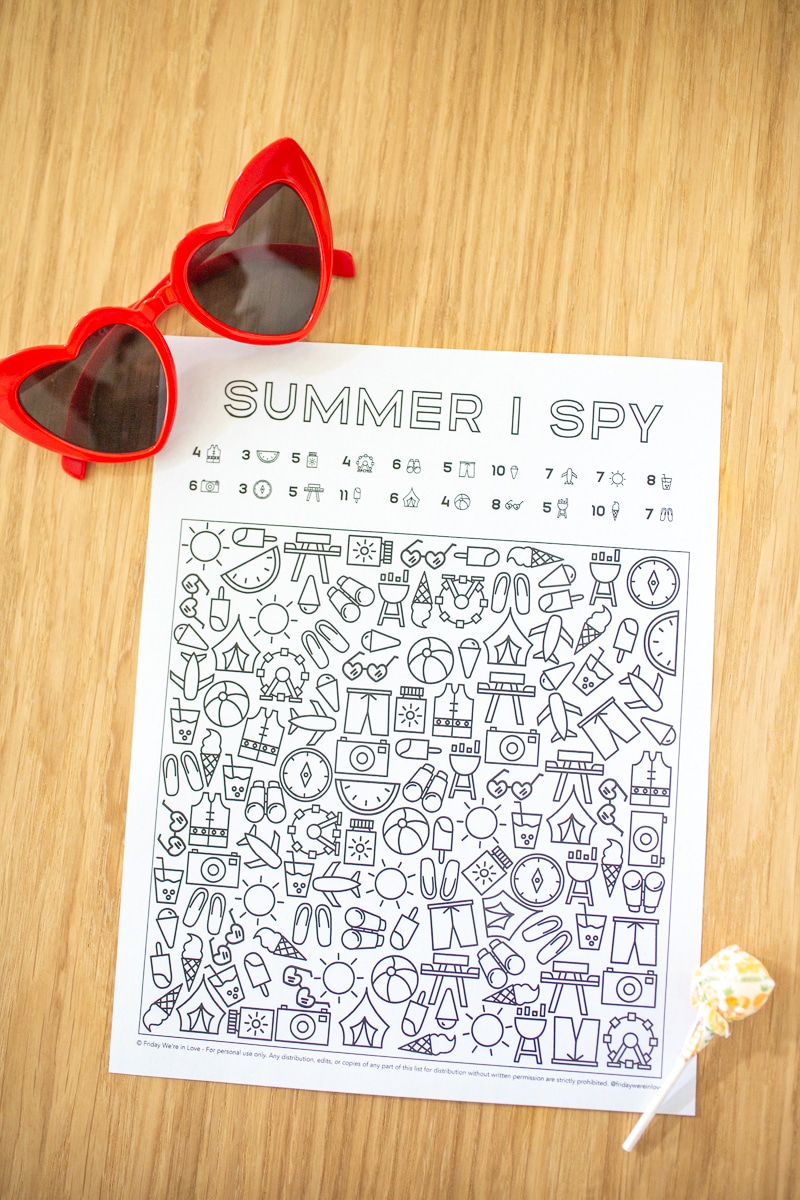 SUMMER I SPY
4 3 5 4 6 5 10 7 7 8
6 3 5 11 6 4 8 5 10 7
© Friday We're in Love - For personal use only. Any distribution, edits, or copies of any part of this list for distribution without written permission are strictly prohibited. @fridaywereinlove